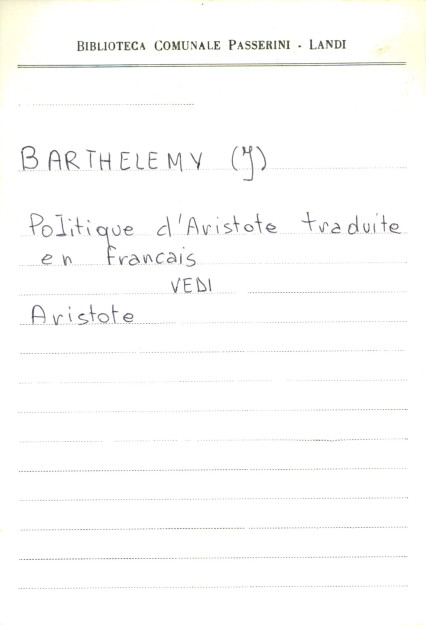 BIBLIOTECA COMUNALE PASSERINI - LANDI
BARTHELEMY (J)
Politique d'Aristote traduite
en francais
VEDI
Aristote